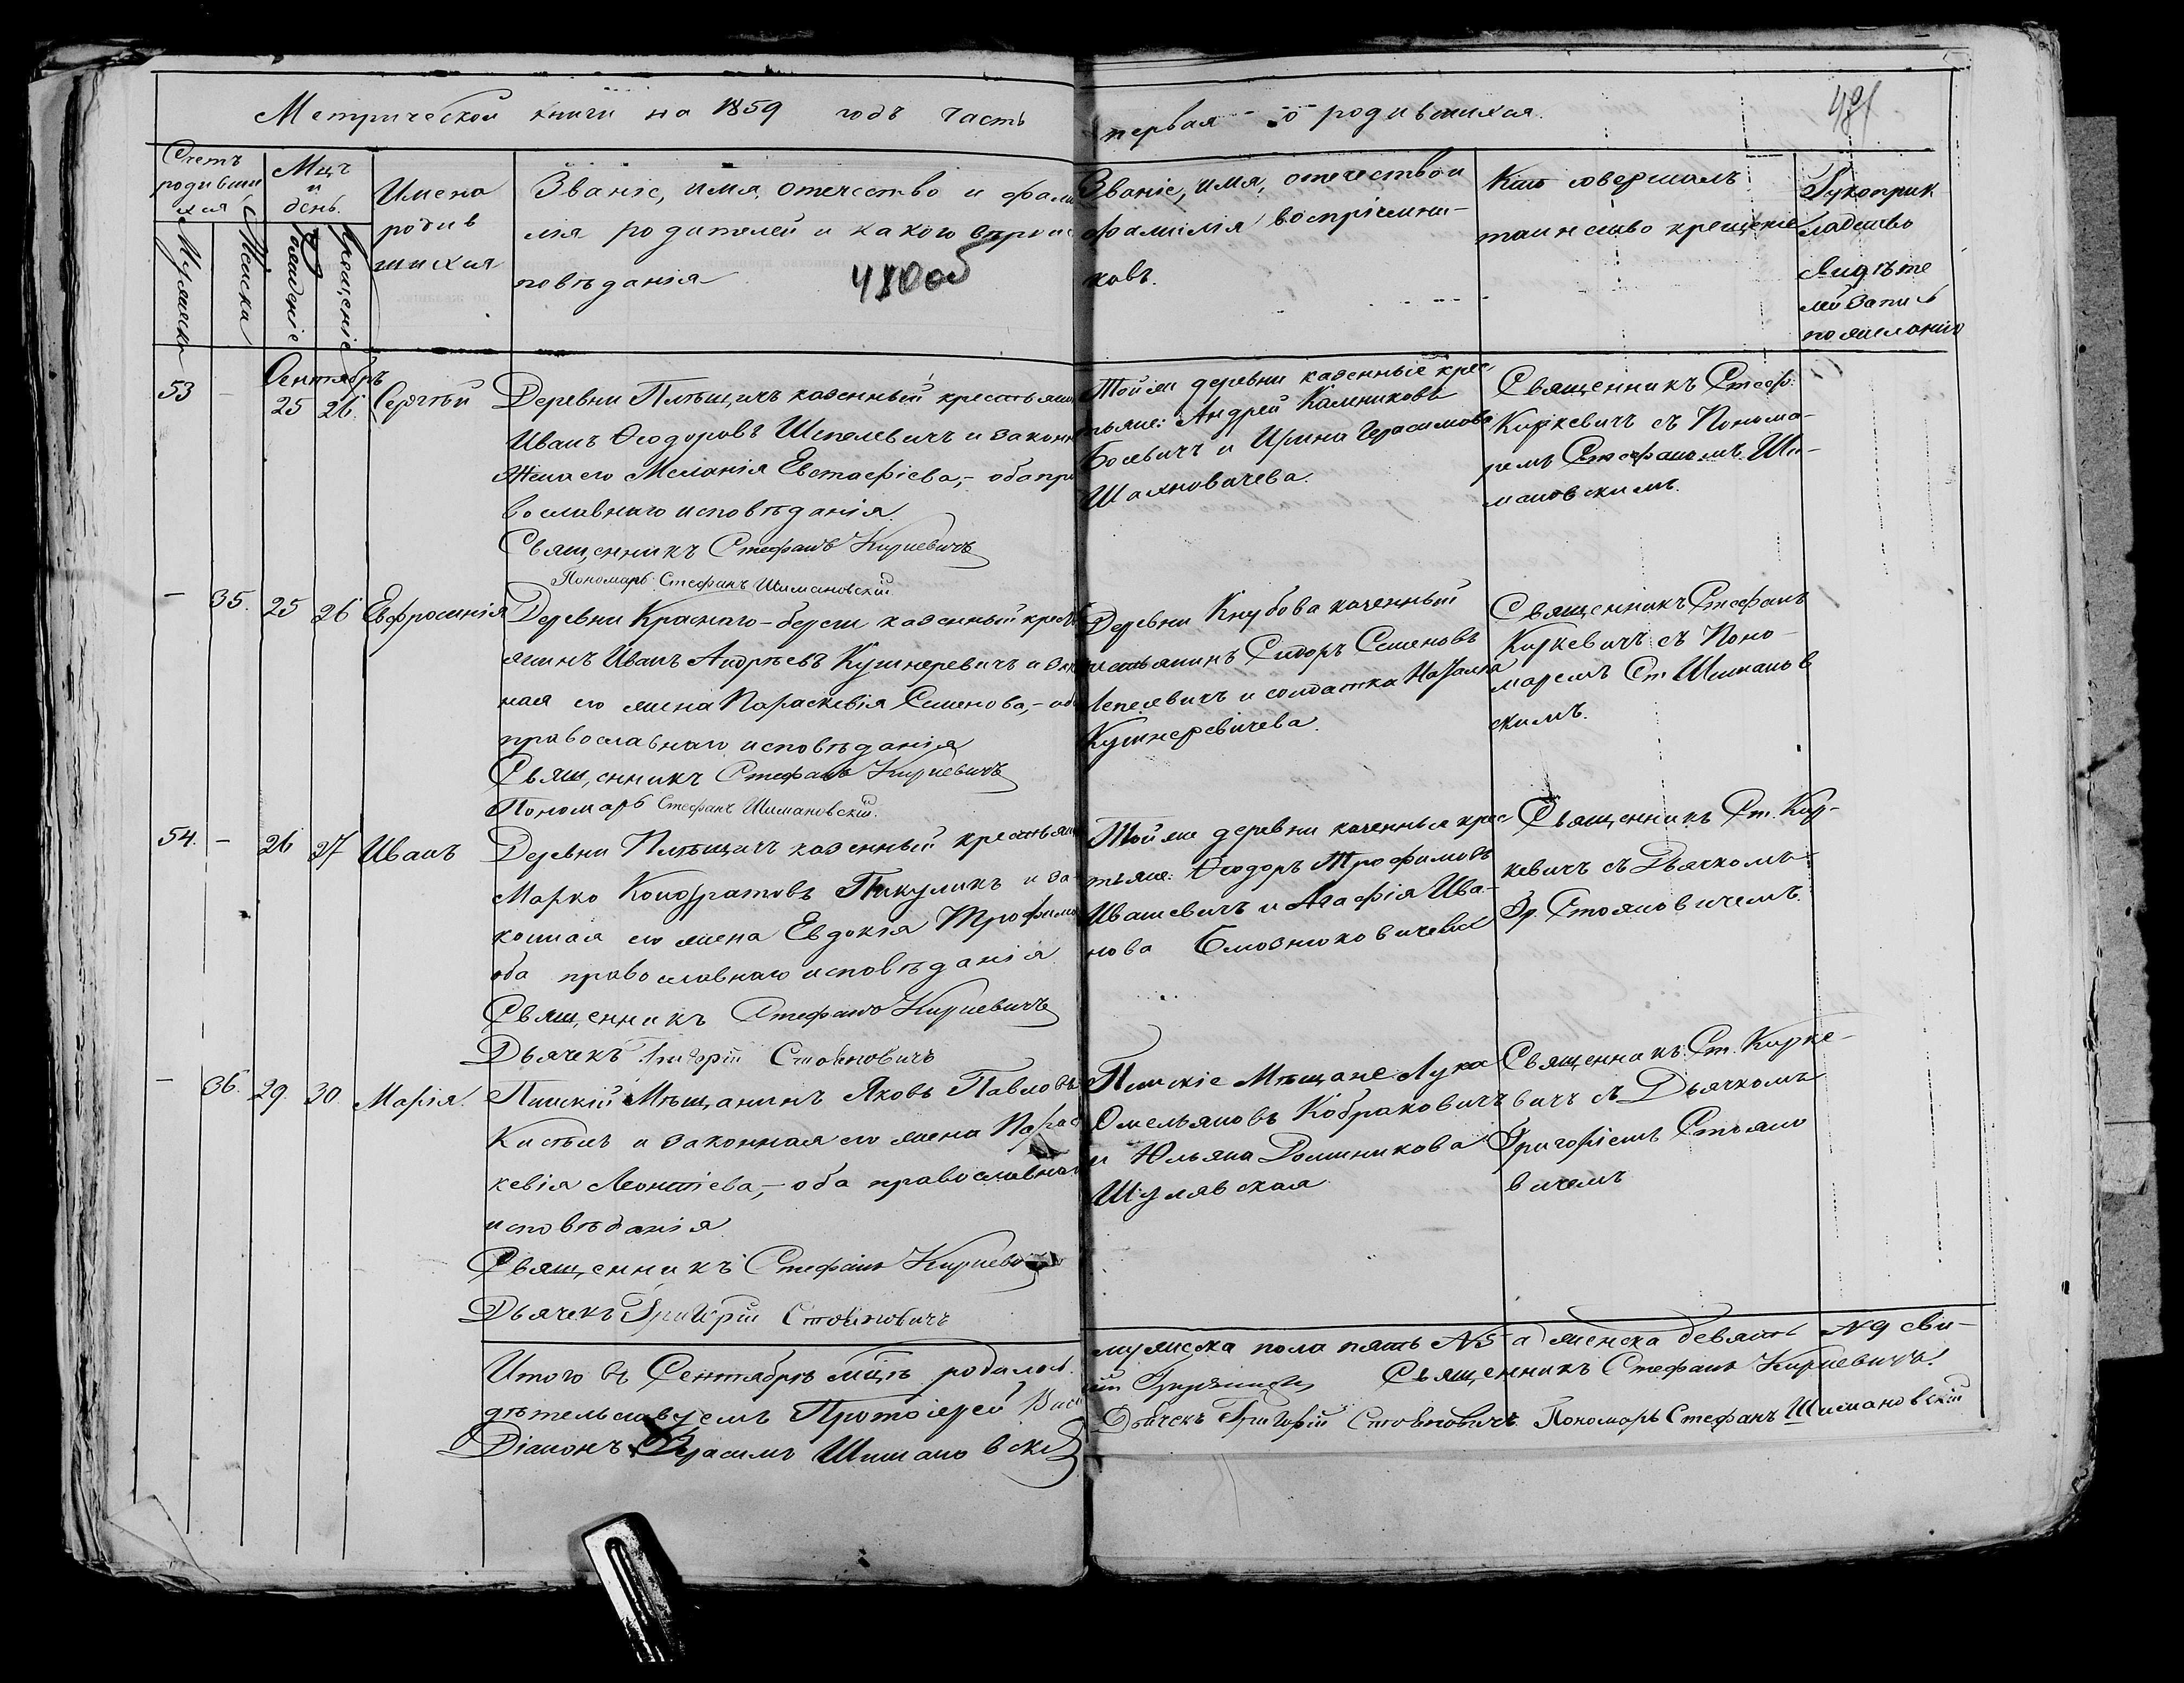 Метрической книги на 1859 годъ часть первая о родившихся.
481
Счетъ родившихся
Мужеска
Женска
Мцъ и день.
Рожденіе
Крещеніе
Имена родившихся
Званіе, имя, отечество и фами
лія родителей и какого вѣроис
повѣданія
480 об
Званіе, имя, отечество и
фамилія воспріемни-
ковъ.
Кто совершалъ
таинство крещенія
Рукоприк
ладство
свидѣте
лей запись
по желанію
Сентябрь
53 - 25 26. Сергѣй
Деревни Плещичъ казенный крестьянин
Иванъ Ѳеодоровъ Шпелевичъ и законн
жена его Меланія Евстафіева,- оба пра
вославнаго исповѣданія.
Священникъ Стефанъ Киркевичъ
Пономарь Стефанъ Шимановскій.
Той же деревни казенные крес
тьяне: Андрей Калениковъ
Боевичъ и Ирина Герасимова
Шахновичева.
Священникъ Стеф.
Киркевичъ съ Понома-
ремъ Стефаномъ Ши-
мановскимъ.
- 35. 25 26 Евфросинія
Деревни Краснаго-берега казенный крест
янинъ Иванъ Андрѣевъ Кушнеревичъ и зак
ная его жена Параскевія Семенова,- об
православнаго исповѣданія
Священникъ Стефанъ Киркевичъ
Пономарь Стефанъ Шимановскій.
Деревни Кнубова казенный
крестьянинъ Сидоръ Семеновъ
Лепесевичъ и солдатка Наталія
Кушнеревичева.
Священникъ Стефанъ
Киркевичъ съ Поно-
маремъ Ст. Шиманов
скимъ.
54. - 26 27 Иванъ
Деревни Плещичъ казенный крестьян
Марко Кондратовъ Пикуликъ и за
конная его жена Евдокія Трофимо
оба православнаго исповѣданія
Священникъ Стефанъ Киркевичъ
Дьячекъ Григорій Стояновичъ
Той же деревни казенные крес
тьяне: Ѳеодоръ Трофимовъ
Ивашевичъ и Агафія Ива-
нова
Священникъ Ст. Кир-
кевичъ съ Дьячкомъ
Гр. Стояновичемъ.
- 36. 29. 30. Марія.
Пинскій Мѣщанинъ Яковъ Павловъ
и законная его жена Парас
кевія Леонтіева,- оба православна
исповѣданія.
Священникъ Стефанъ Киркевичъ
Дьячекъ Григорій Стояновичъ
Пинскіе Мѣщане Лука
Омельяновъ Кобраковичъ
и Юльяна Доминикова
Шулявская
Священникъ Ст. Кирке-
вичъ съ Дьячкомъ
Григоріемъ Стояно
вичемъ
Итого въ Сентябрѣ мцѣ родилось
мужеска пола пять №5 а женска девять №9 сви-
дѣтельствуемъ Протоіерей Васи
Священникъ Стефанъ Киркевичъ.
Діаконъ Герасимъ Шимановскій
Дьячекъ Григорій Стояновичъ Пономарь Стефанъ Шимановскій